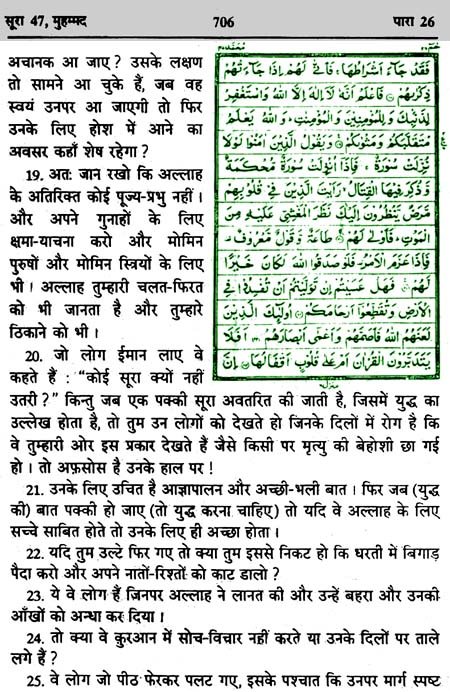 सूरा 47, मुहम्मद 706 पारा 26
अचानक आ जाए ? उसके लक्षण
तो सामने आ चुके हैं, जब वह
स्वयं उनपर आ जाएगी तो फिर
उनके लिए होश में आने का
अवसर कहाँ शेष रहेगा ?
19. अतः जान रखो कि अल्लाह
के अतिरिक्त कोई पूज्य-प्रभु नहीं ।
और अपने गुनाहों के लिए
क्षमा-याचना करो और मोमिन
पुरुषों और मोमिन स्त्रियों के लिए
भी ! अल्लाह तुम्हारी चलत-फिरत
को भी जानता है और तुम्हारे
ठिकाने को भी ।
20. जो लोग ईमान लाए वे
कहते हैं : “कोई सूरा क्यों नहीं
فَقَدْ جَآءَ اَشْرَاطُهَا، فَاَنّٰى لَهُمْ اِذَا جَآءَتْهُمْ
ذِكْرٰىهُمْ ۞ فَاعْلَمْ اَنَّهٗ لَآ اِلٰهَ اِلَّا اللّٰهُ وَاسْتَغْفِرْ
لِذَنْۢبِكَ وَلِلْمُؤْمِنِيْنَ وَالْمُؤْمِنٰتِ، وَاللّٰهُ يَعْلَمُ
مُتَقَلَّبَكُمْ وَمَثْوٰىكُمْ ۞ وَيَقُوْلُ الَّذِيْنَ اٰمَنُوْا لَوْلَا
نُزِّلَتْ سُوْرَةٌ، فَاِذَآ اُنْزِلَتْ سُوْرَةٌ مُّحْكَمَةٌ
وَّذُكِرَ فِيْهَا الْقِتَالُ، رَاَيْتَ الَّذِيْنَ فِيْ قُلُوْبِهِمْ
مَّرَضٌ يَّنْظُرُوْنَ اِلَيْكَ نَظَرَ الْمَغْشِيِّ عَلَيْهِ مِنَ
الْمَوْتِ، فَاَوْلٰى لَهُمْ ۞ طَاعَةٌ وَّقَوْلٌ مَّعْرُوْفٌ
فَاِذَا عَزَمَ الْاَمْرُ، فَلَوْ صَدَقُوا اللّٰهَ لَكَانَ خَيْرًا
لَّهُمْ ۞ فَهَلْ عَسَيْتُمْ اِنْ تَوَلَّيْتُمْ اَنْ تُفْسِدُوْا فِي
الْاَرْضِ وَتُقَطِّعُوْٓا اَرْحَامَكُمْ ۞ اُولٰٓئِكَ الَّذِيْنَ
لَعَنَهُمُ اللّٰهُ فَاَصَمَّهُمْ وَاَعْمٰٓى اَبْصَارَهُمْ ۞ اَفَلَا
يَتَدَبَّرُوْنَ الْقُرْاٰنَ اَمْ عَلٰى قُلُوْبٍ اَقْفَالُهَا ۞ اِنَّ
उतरी ?” किन्तु जब एक पक्की सूरा अवतरित की जाती है, जिसमें युद्ध का
उल्लेख होता है, तो तुम उन लोगों को देखते हो जिनके दिलों में रोग है कि
वे तुम्हारी ओर इस प्रकार देखते हैं जैसे किसी पर मृत्यु की बेहोशी छा गई
हो । तो अफ़सोस है उनके हाल पर !
21. उनके लिए उचित है आज्ञापालन और अच्छी-भली बात । फिर जब (युद्ध
की) बात पक्की हो जाए (तो युद्ध करना चाहिए) तो यदि वे अल्लाह के लिए
सच्चे साबित होते तो उनके लिए ही अच्छा होता ।
22. यदि तुम उल्टे फिर गए तो क्या तुम इससे निकट हो कि धरती में बिगाड़
पैदा करो और अपने नातों-रिश्तों को काट डालो ?
23. ये वे लोग हैं जिनपर अल्लाह ने लानत की और उन्हें बहरा और उनकी
आँखों को अन्धा कर दिया ।
24. तो क्या वे क़ुरआन में सोच-विचार नहीं करते या उनके दिलों पर ताले
लगे हैं ?
25. वे लोग जो पीठ फेरकर पलट गए, इसके पश्चात कि उनपर मार्ग स्पष्ट